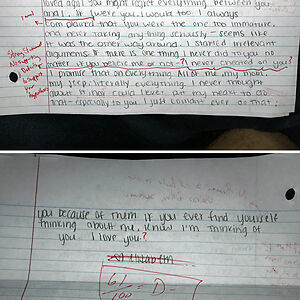 loved you. You might regret everything between you
and I. If I were you, I would too. I always
com paired that you were the one too immature,
and never taking anything seriously - seems like
it was the other way around. I started irrelevant
arguments. If there is one thing I never did to you no
matter if you believe me or not - I never cheated on you?
I promise that on everything. All of me, my mom,
my jeep, literally everything. I never thought
about it, nor could I ever put my heart to do
that - especially to you. I just couldnt ever do that.
you because of them. If you ever find yourself
thinking about me, know I'm thinking of
you. I love you.?
61/100 = D-